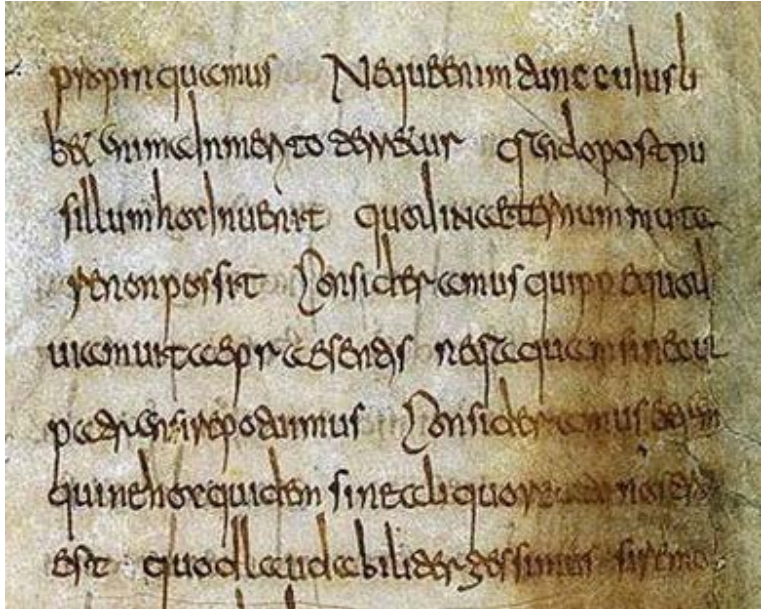 propinquamus Neque enim tunc cuiusli
bet anima inmerito terretur quando post pu
sillum hoc invenit quod in aeternum muta
re non possit Consideramus quippe quod
viam vitae praesentis nequaquam sine cul
pa transire potuimus Consideramus etiam
quia ne hoc quidem sine aliquo reatu
est quod laudabiliter gessimus si remo